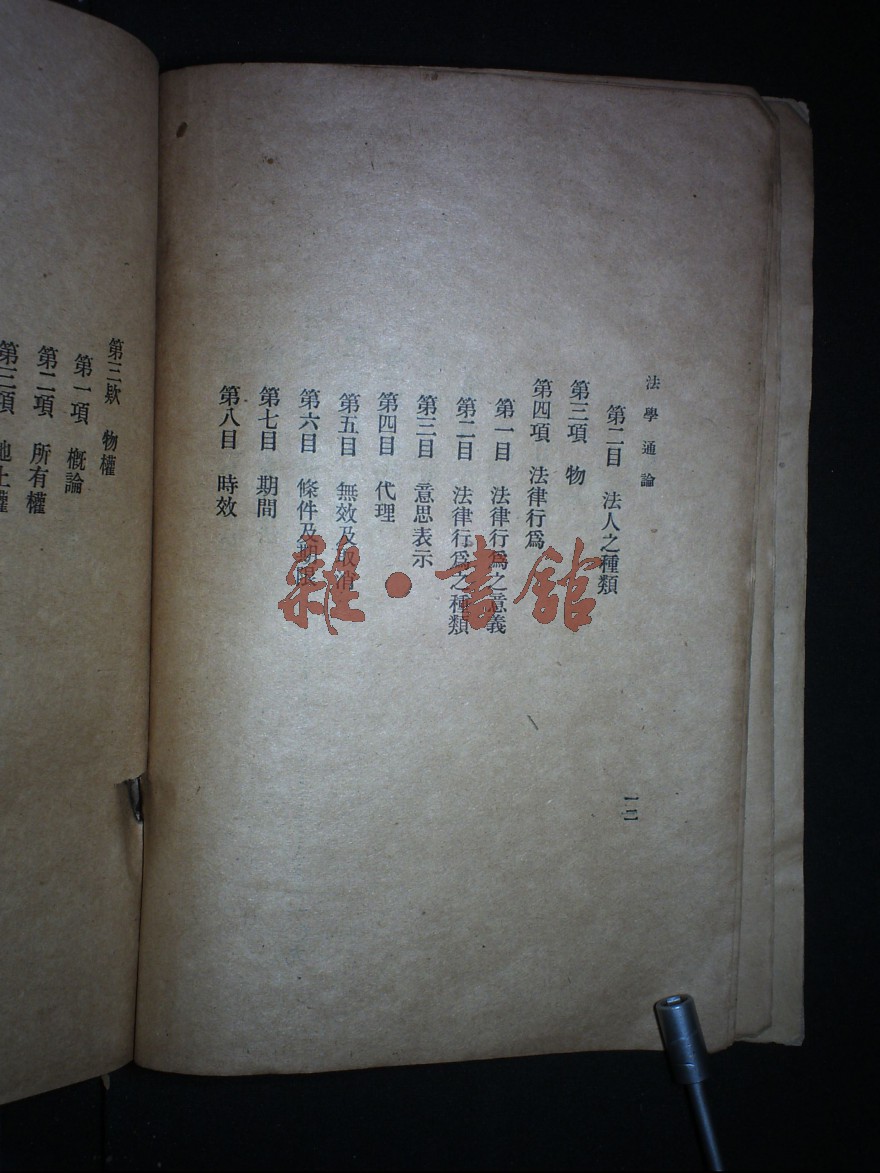 法學通論
第二目 法人之種類
第三項 物
第四項 法律行爲
第一目 法律行爲之意義
第二目 法律行爲之種類
第三目 意思表示
第四目 代理
第五目 無效及取消
第六目 條件及期限
第七目 期間
第八目 時效
一二
第三欵 物權
第一項 概論
第二項 所有權
第三項 地上權
雜·書館